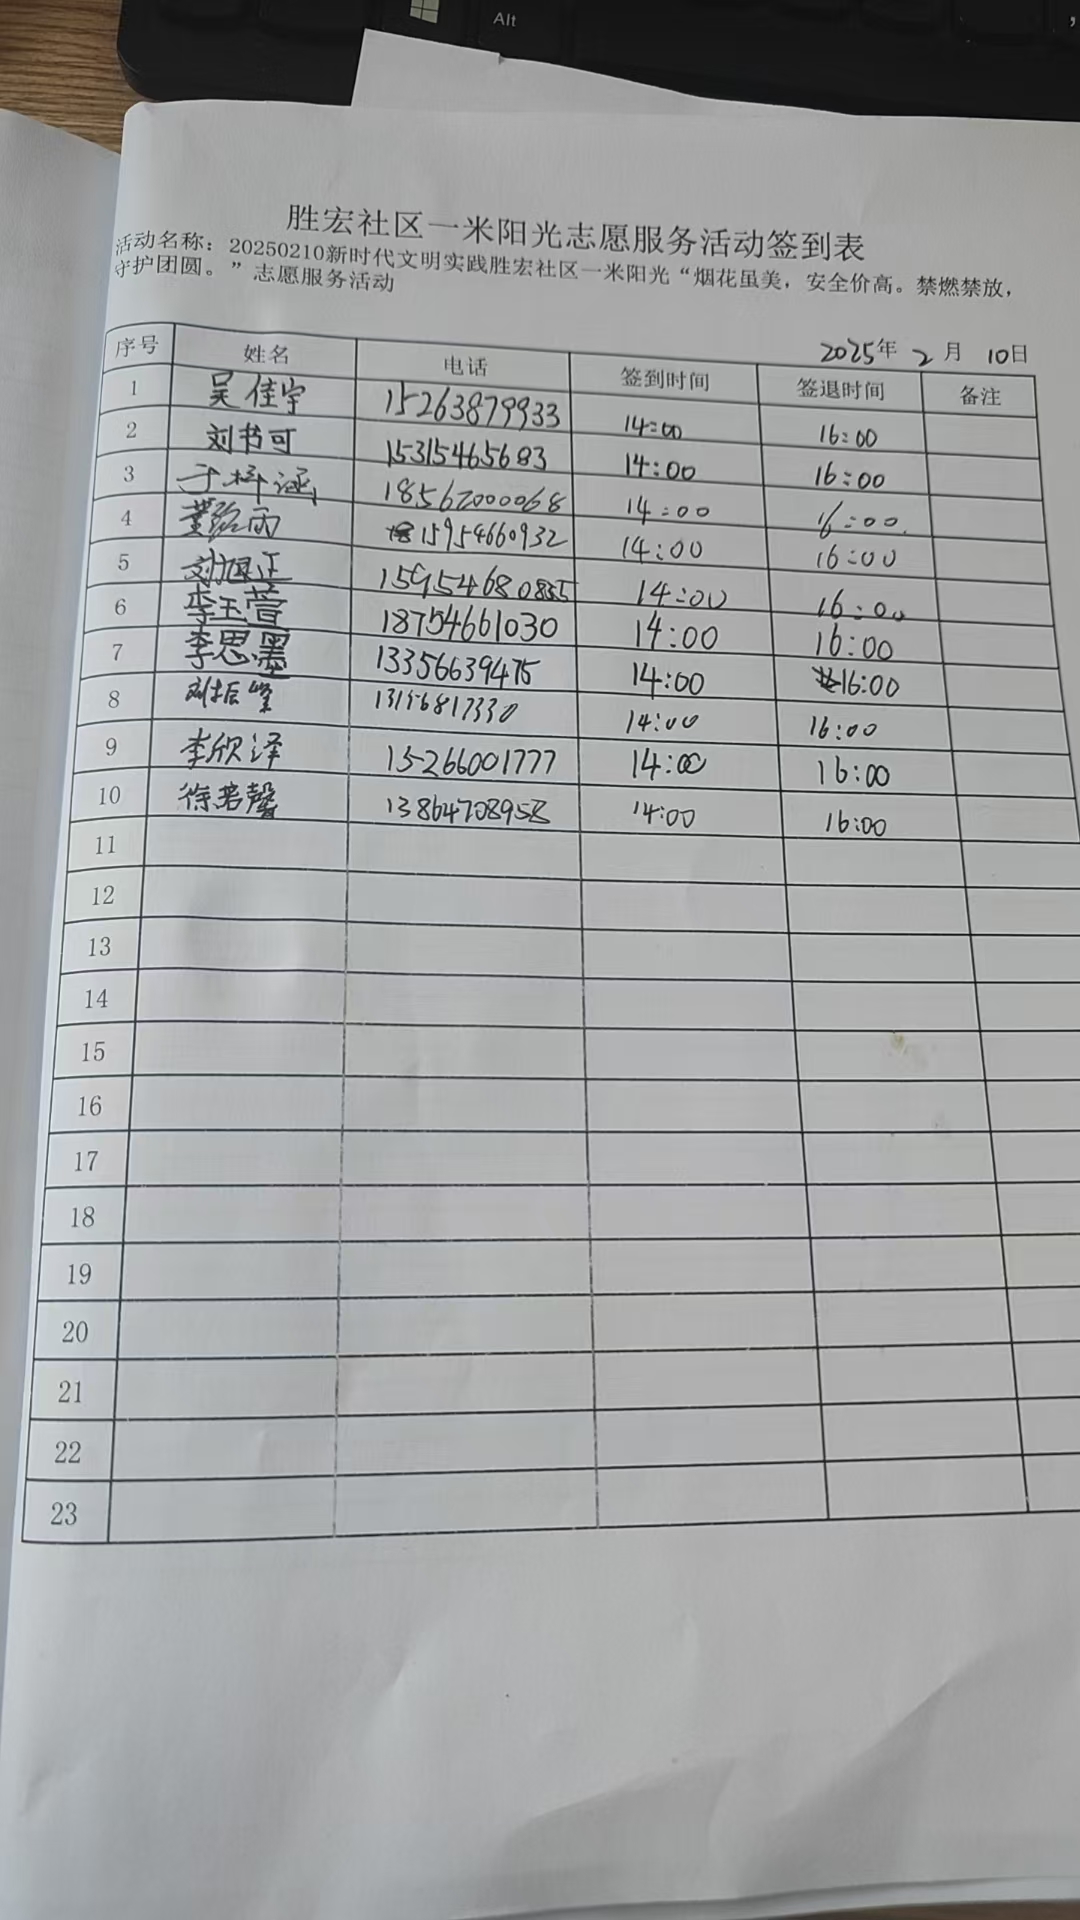 Alt
胜宏社区一米阳光志愿服务活动签到表
活动名称：20250210新时代文明实践胜宏社区一米阳光“烟花虽美，安全价高。禁燃禁放，
守护团圆。”志愿服务活动
2025年 2月 10日
序号 姓名 电话 签到时间 签退时间 备注
1 吴佳宇 15263879933 14:00 16:00
2 刘书可 15315465683 14:00 16:00
3 于梓涵 18562000068 14:00 16:00
4 雨 15954660932 14:00 16:00
5 刘旭正 14:00 16:00
6 李玉萱 18754661030 14:00 16:00
7 李思墨 13356639475 14:00 16:00
8 刘振 14:00 16:00
9 李欣泽 15266001777 14:00 16:00
10 徐若馨 13864708958 14:00 16:00
11
12
13
14
15
16
17
18
19
20
21
22
23